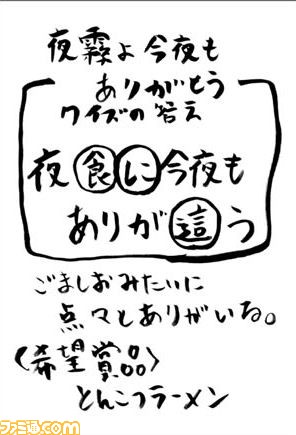 夜霧よ今夜も
ありがとう
クイズの答え
夜食に今夜も
ありが這う
ごましおみたいに
点々とありがいる。
〈希望賞品〉
とんこつラーメン
ファミ通.com